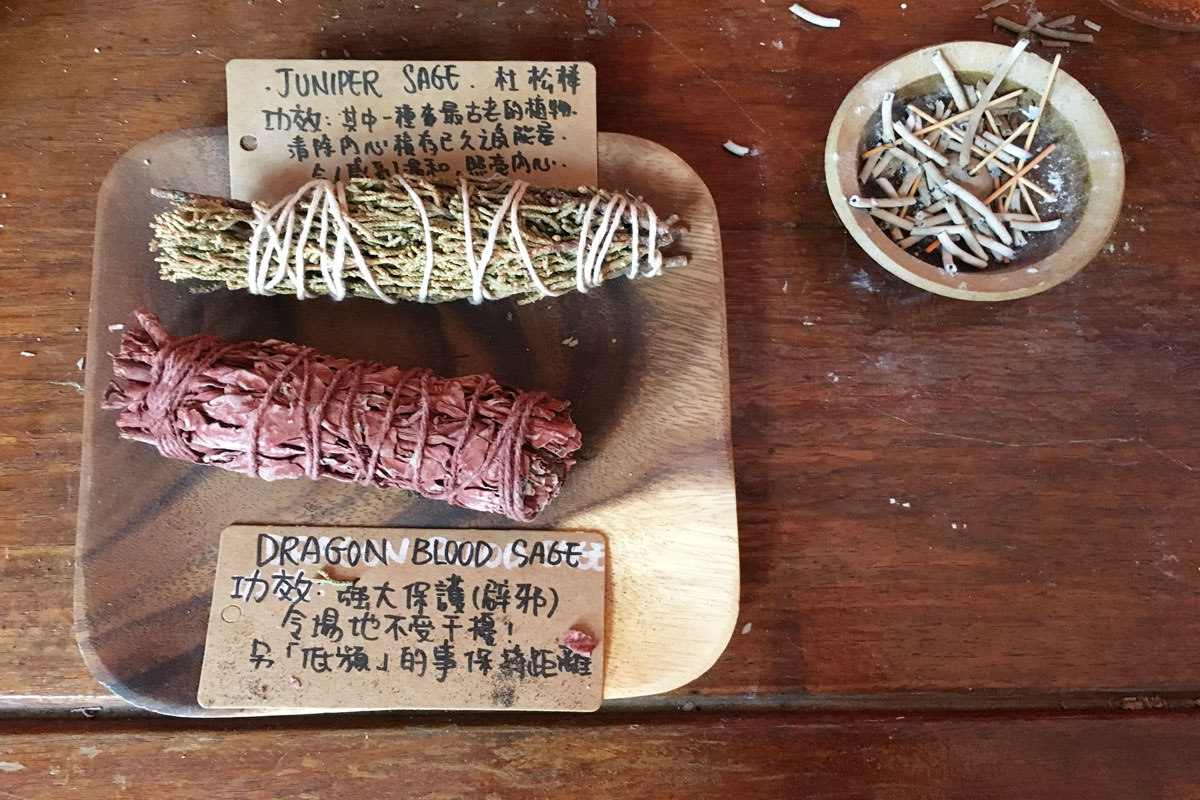 .JUNIPER SAGE. 杜松樺
功效：其中一種香最古老的植物.
清除內心積有已久之負能量.
令人感到溫和，照亮內心..
DRAGON BLOOD SAGE
功效：強大保護(辟邪)
令場地不受干擾！
另「低頻」的事保持距離